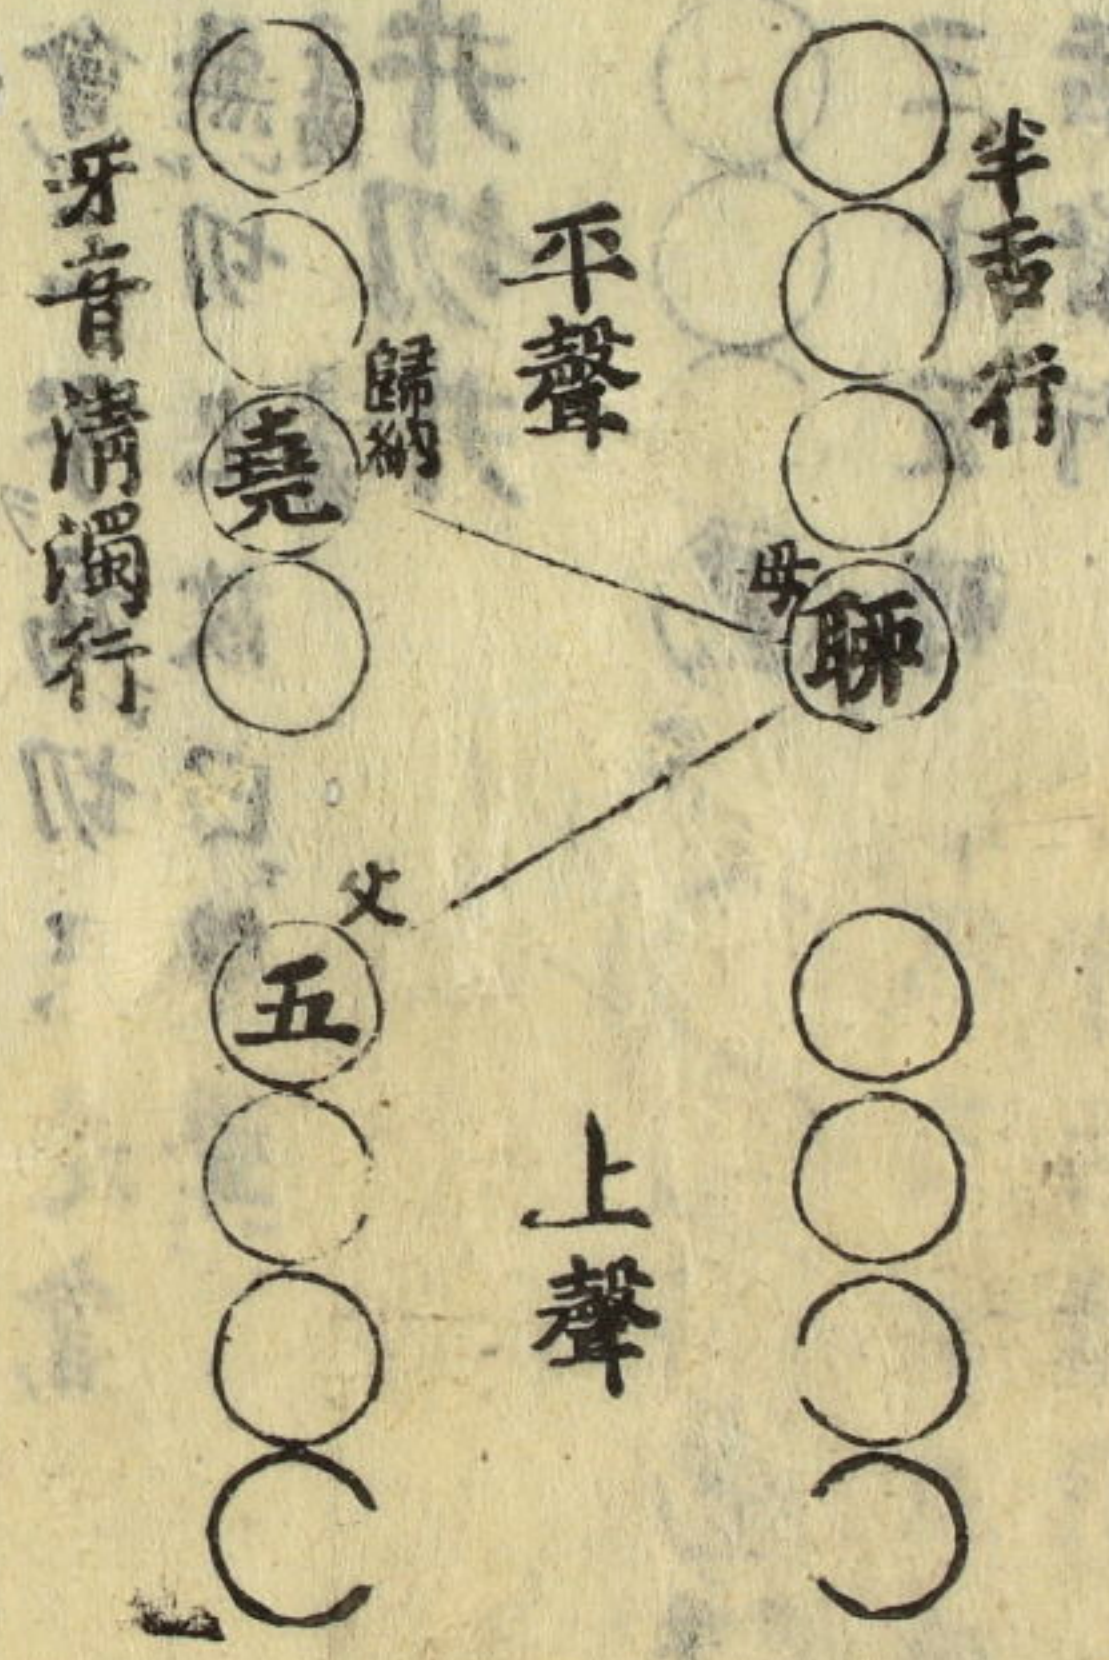 半舌行
母
聊
平聲
上聲
歸納
父
堯
五
牙音清濁行